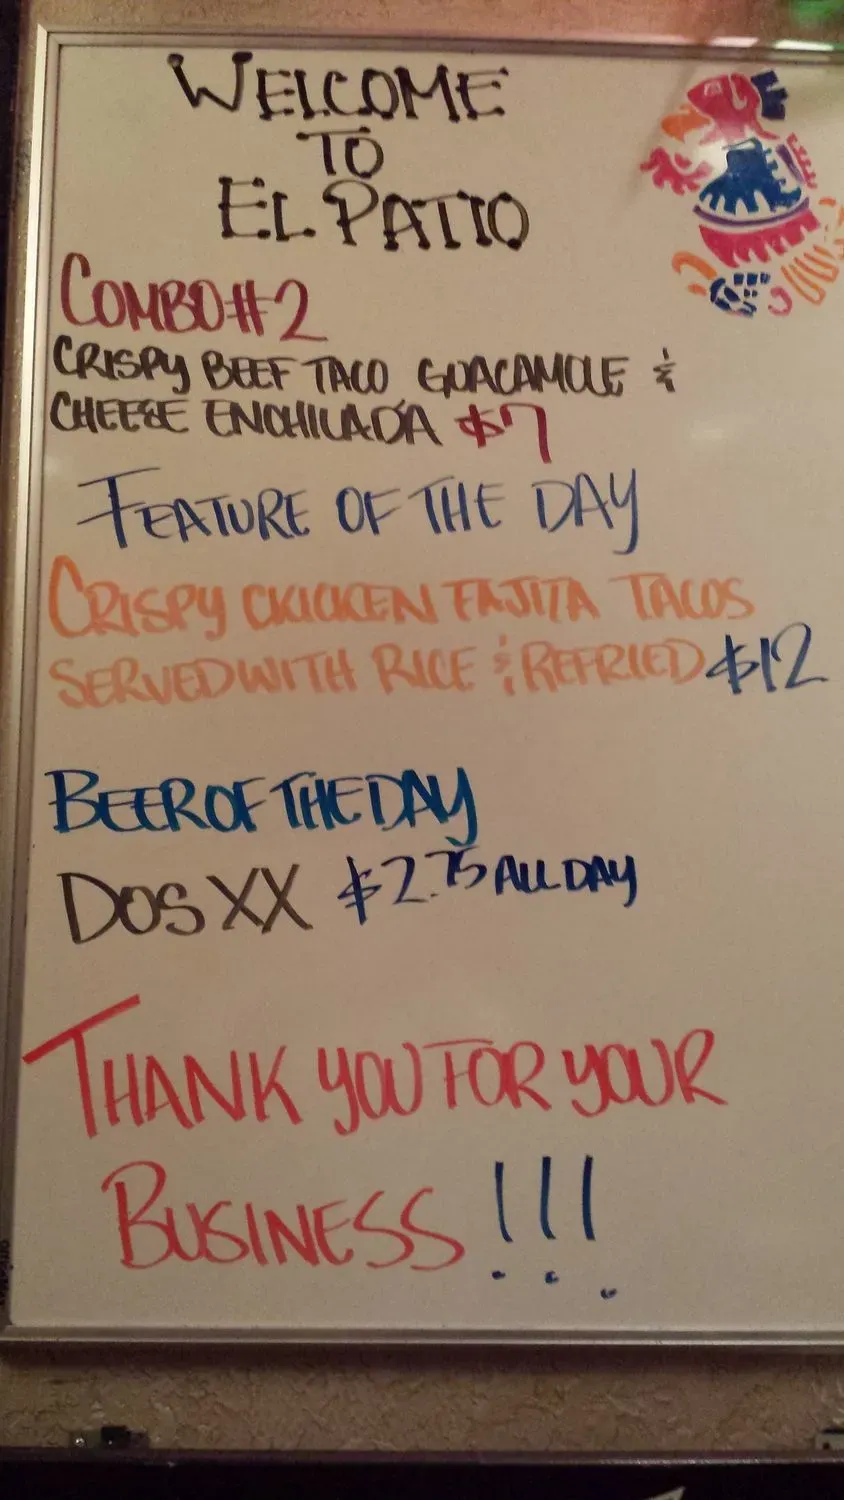 WELCOME
TO
EL PATIO
COMBO #2
CRISPY BEEF TACO GUACAMOLE &
CHEESE ENCHILADA $7
FEATURE OF THE DAY
CRISPY CHICKEN FAJITA TACOS
SERVED WITH RICE & REFRIED $12
BEER OF THE DAY
DOS XX $2.75 ALL DAY
THANK YOU FOR YOUR
BUSINESS!!!